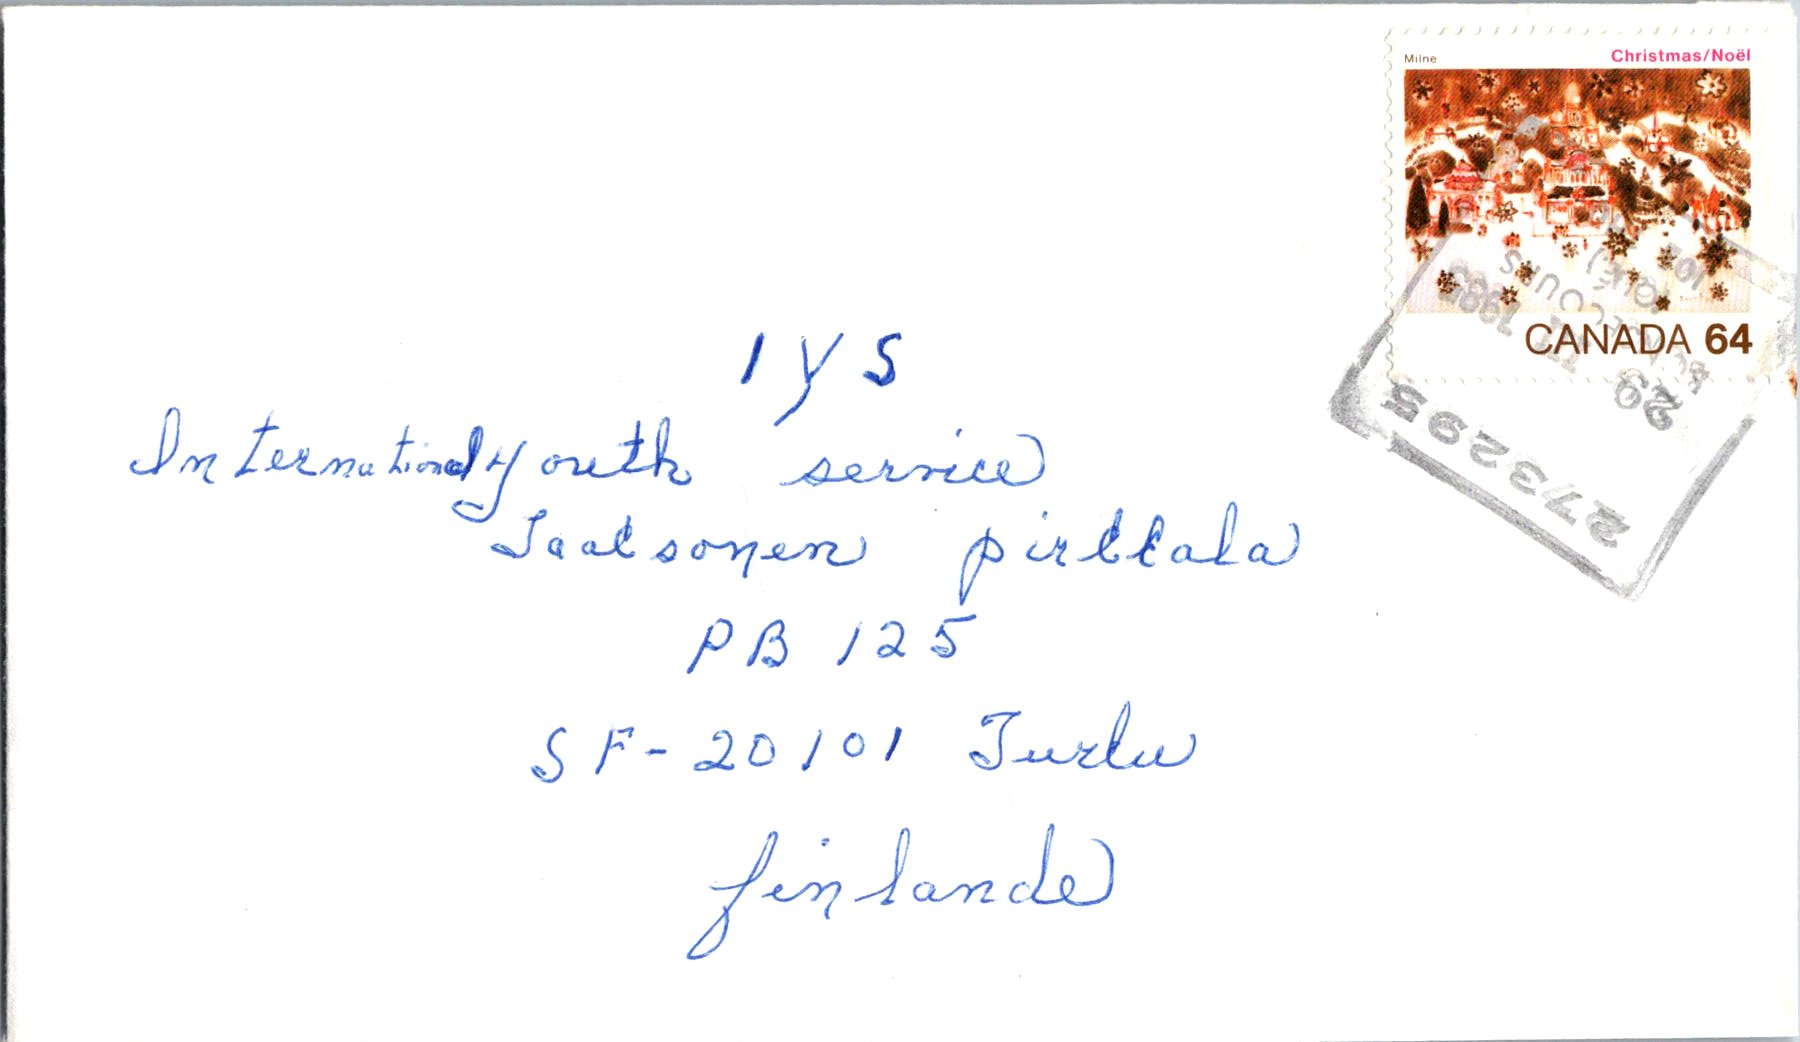 Milne
Christmas/Noël
CANADA 64
273295
29
1985
IYS
International youth service
pirttala
PB 125
SF-20101 Turku
finlande